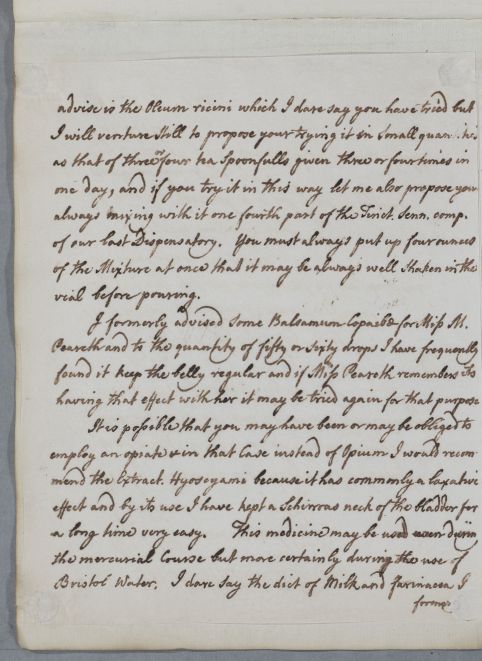 advise is the Oleum ricini which I dare say you have tried but
I will venture still to propose your trying it in Small quan
as that of three or four tea Spoonfulls given three or four times in
one day, and if you try it in this way let me also propose your
always mixing with it one fourth part of the Tinct. Senn. comp.
of our last Dispensatory. You must always put up four ounces
of the Mixture at once that it may be always well Shaken in the
vial before pouring.
I formerly advised some Balsamum Copaibæ for Miss M.
Peareth and to the quantity of fifty or Sixty drops I have frequently
found it keep the belly regular and if Miss Peareth remembers its
having that effect with her it may be tried again for that purpose
It is possible that you may have been or may be obliged to
employ an opiate & in that Case instead of Opium I would recom
mend the Extract. Hyoscyami because it has commonly a laxative
effect and by its use I have kept a Schirrous neck of the bladder for
a long time very easy. This medicine may be used even durin
the mercurial Course but more certainly during the use of
Bristol Water. I dare say the diet of Milk and farinacea I
former